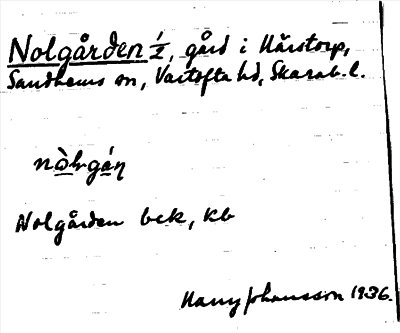 Nolgården ½, gård i Hårstorp,
Sandhems sn, Vartofta hd, Skarab. l.
Nolgården bek, kb
Harry Johansson 1936.